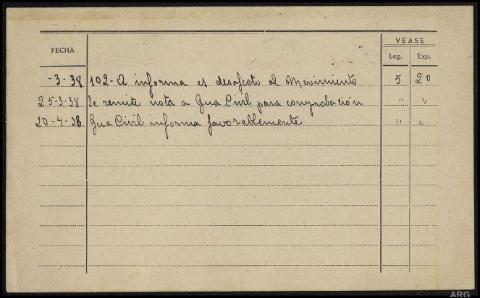 FECHA
VEASE
Leg. Exp.
-3-38 102-A informa es desafecto al Movimiento 5 20
25-3-38 Se remite nota a Gua Civil para comprobación " "
20-4-38 Gua Civil informa favorablemente " "
ARG